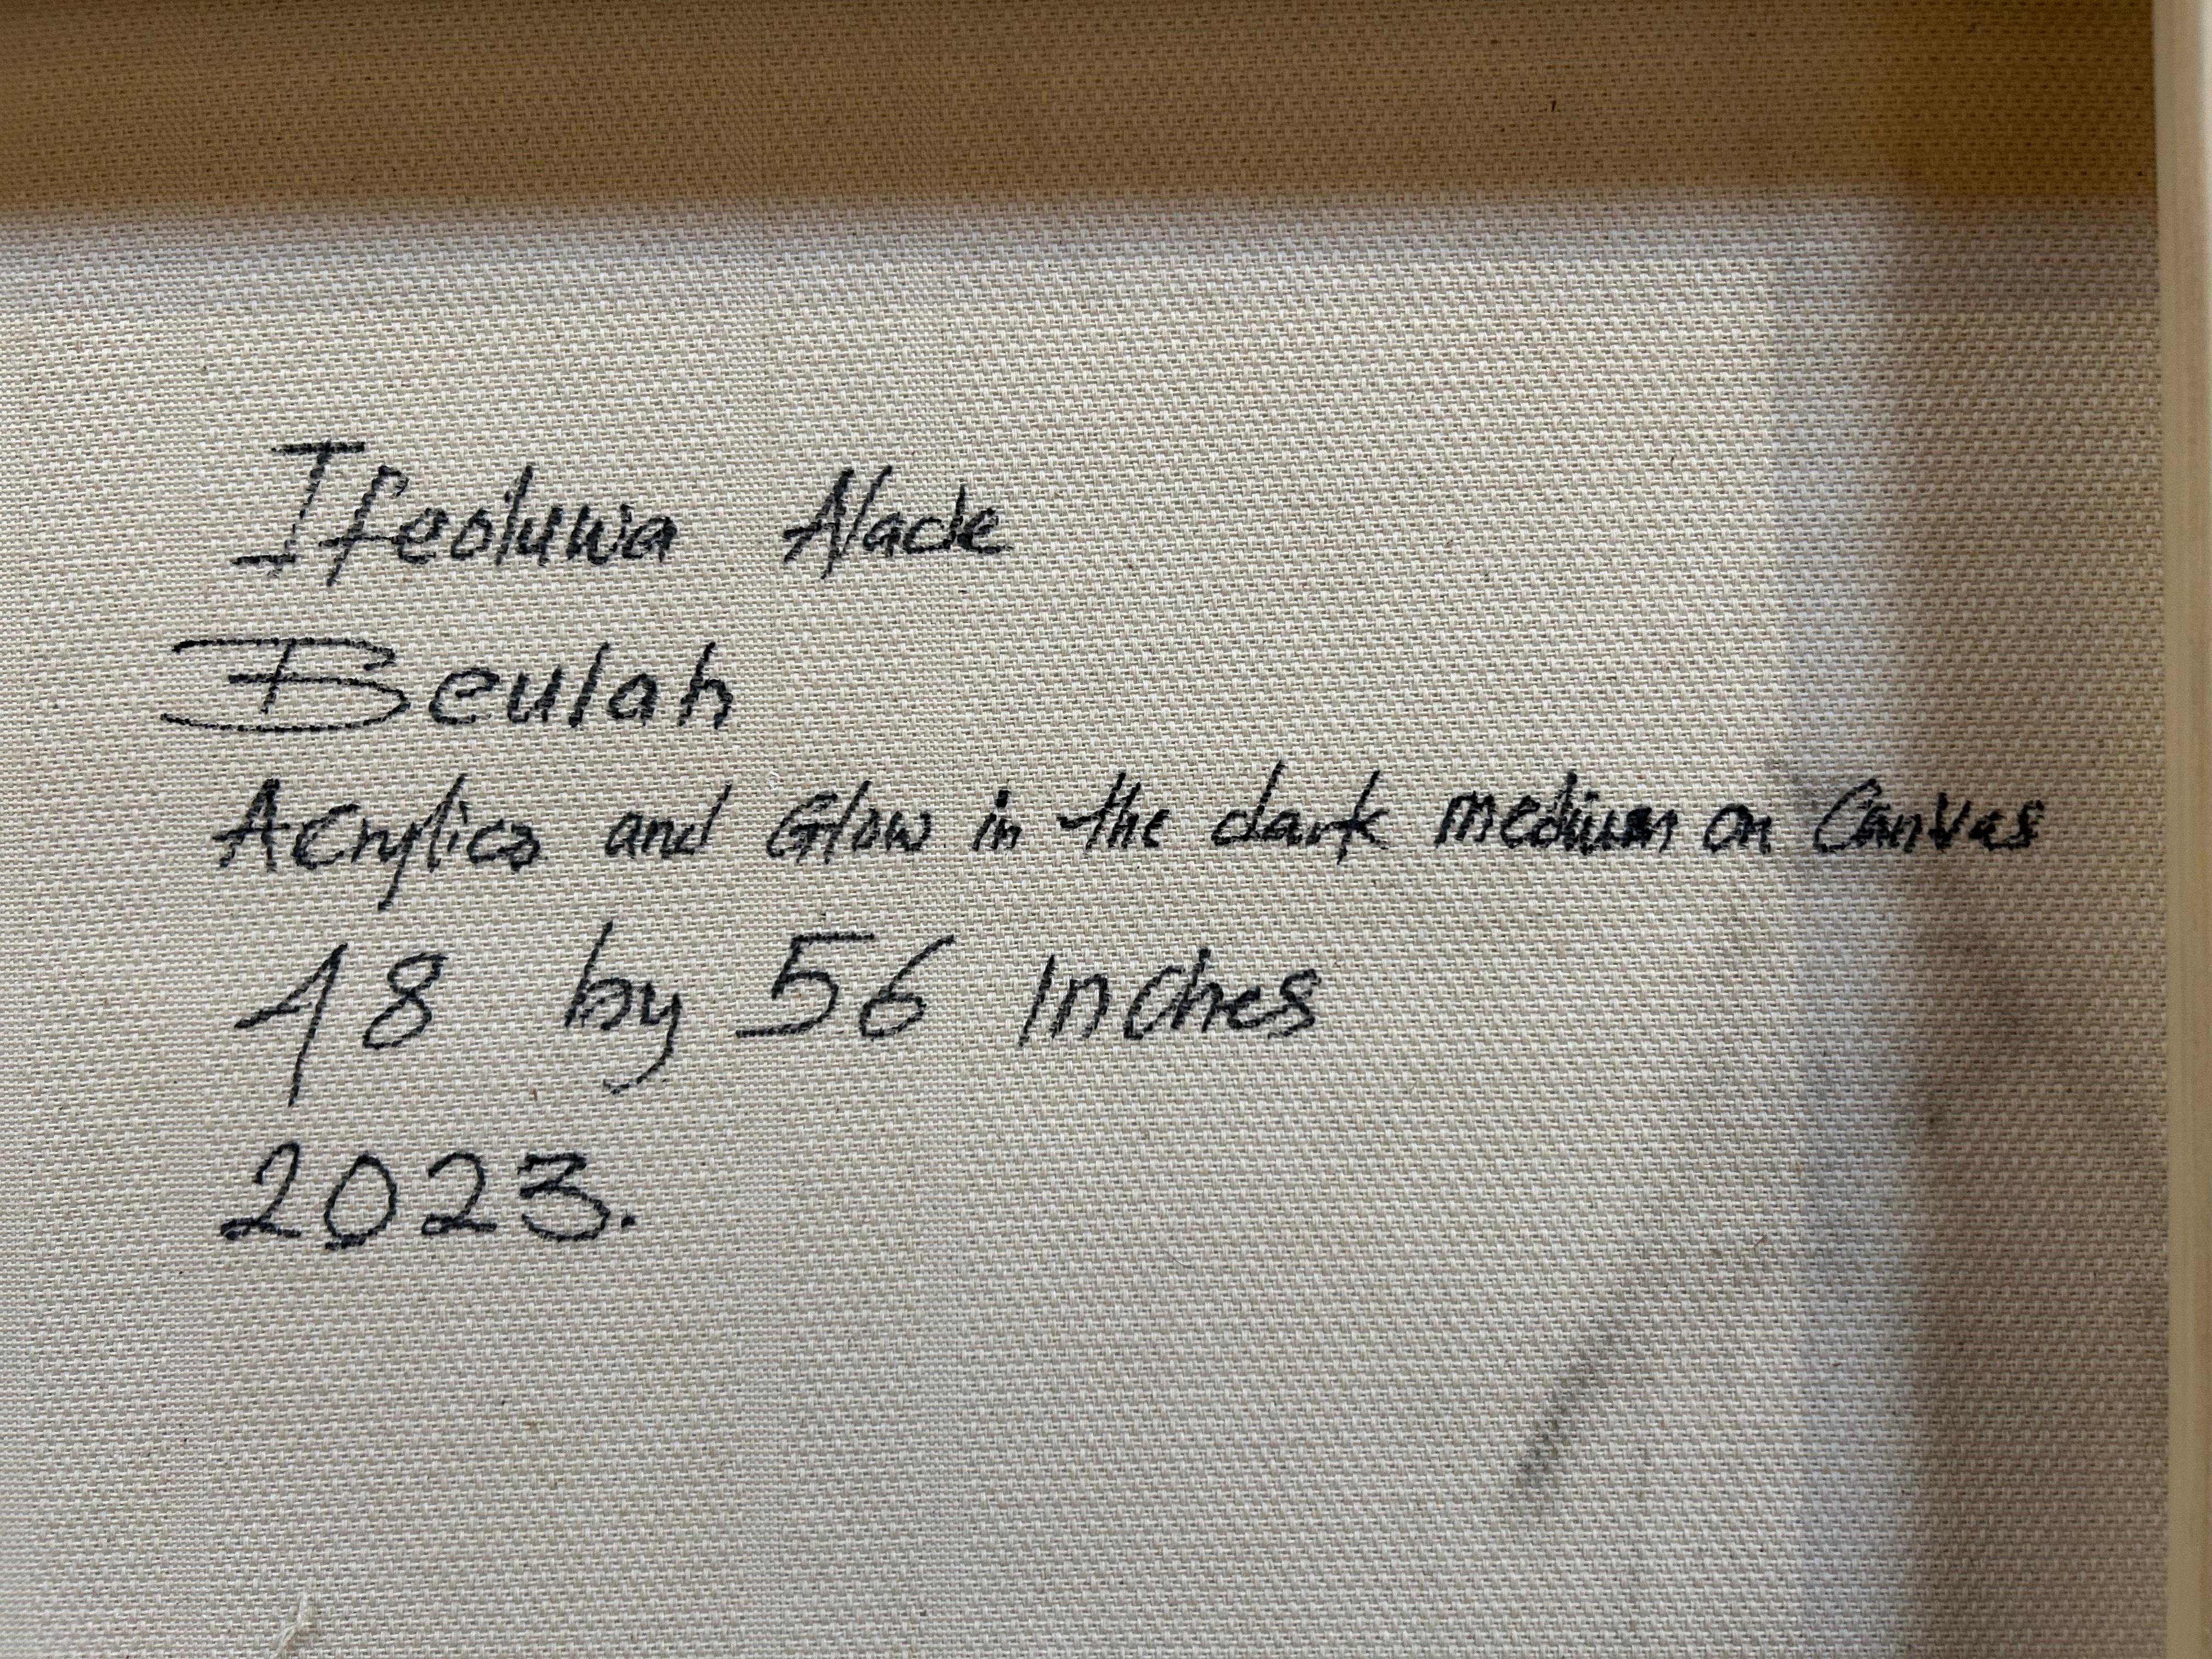 Ifeoluwa Alade
Beulah
Acrylics and Glow in the dark medium on Canvas
48 by 56 Inches
2023.